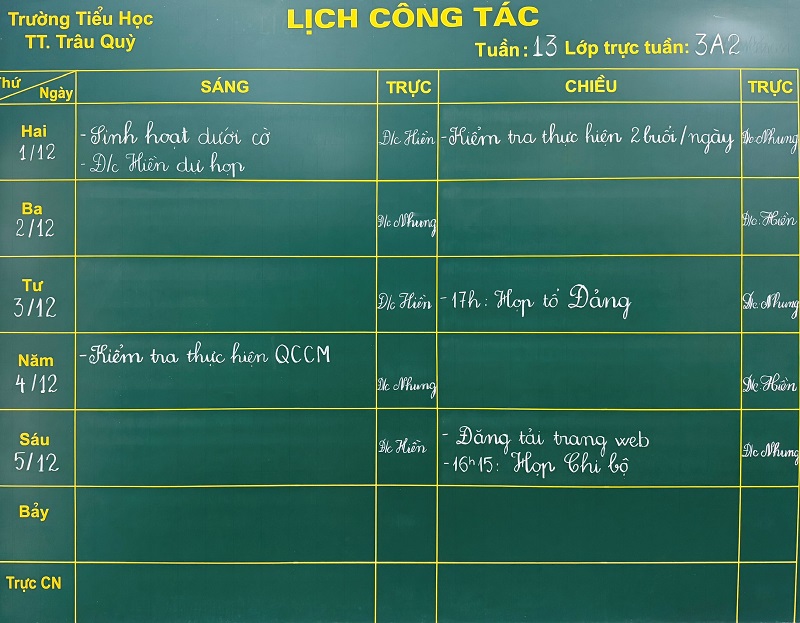 Trường Tiểu Học
TT. Trâu Quỳ
LỊCH CÔNG TÁC
Tuần: 13 Lớp trực tuần: 3A2
Thứ
Ngày
SÁNG
TRỰC
CHIỀU
TRỰC
Hai
1/12
- Sinh hoạt dưới cờ
- Đ/c Hiền dự họp
Đ/c Hiền
- Kiểm tra thực hiện 2 buổi/ngày
Đ/c: Nhung
Ba
2/12
Đ/c Nhung
Đ/c: Hiền
Tư
3/12
Đ/c Hiền
- 17h: Họp tổ Đảng
Đ/c Nhung
Năm
4/12
- Kiểm tra thực hiện QCCM
Đ/c Nhung
Đ/c: Hiền
Sáu
5/12
Đ/c Hiền
- Đăng tải trang web
- 16h15: Họp Chi bộ
Đ/c Nhung
Bảy
Trực CN